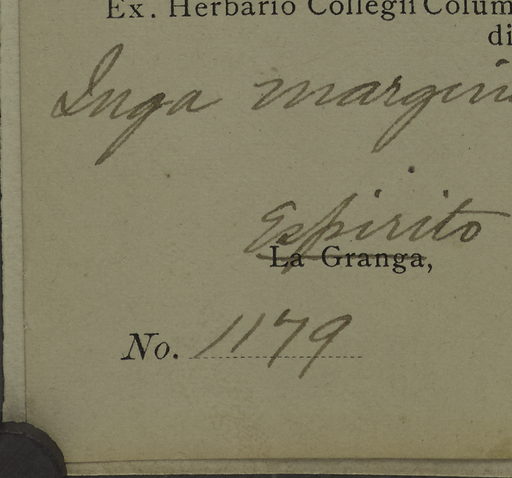 Ex. Herbario Collegii Colum
di
Inga margin
Espirito
La Granga,
No. 1179